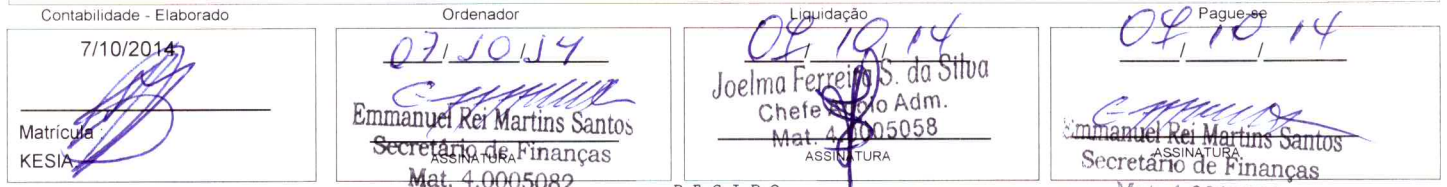 Contabilidade - Elaborado
Ordenador
Liquidação
Pague-se
7/10/2014
Matrícula :
KESIA
07/10/14
Emmanuel Rei Martins Santos
Secretário de Finanças
ASSINATURA
Mat. 4.0005082
07/10/14
Joelma Ferreira S. da Silva
Chefe Apoio Adm.
Mat. 4.0005058
ASSINATURA
07/10/14
Emmanuel Rei Martins Santos
ASSINATURA
Secretário de Finanças
RECIBO